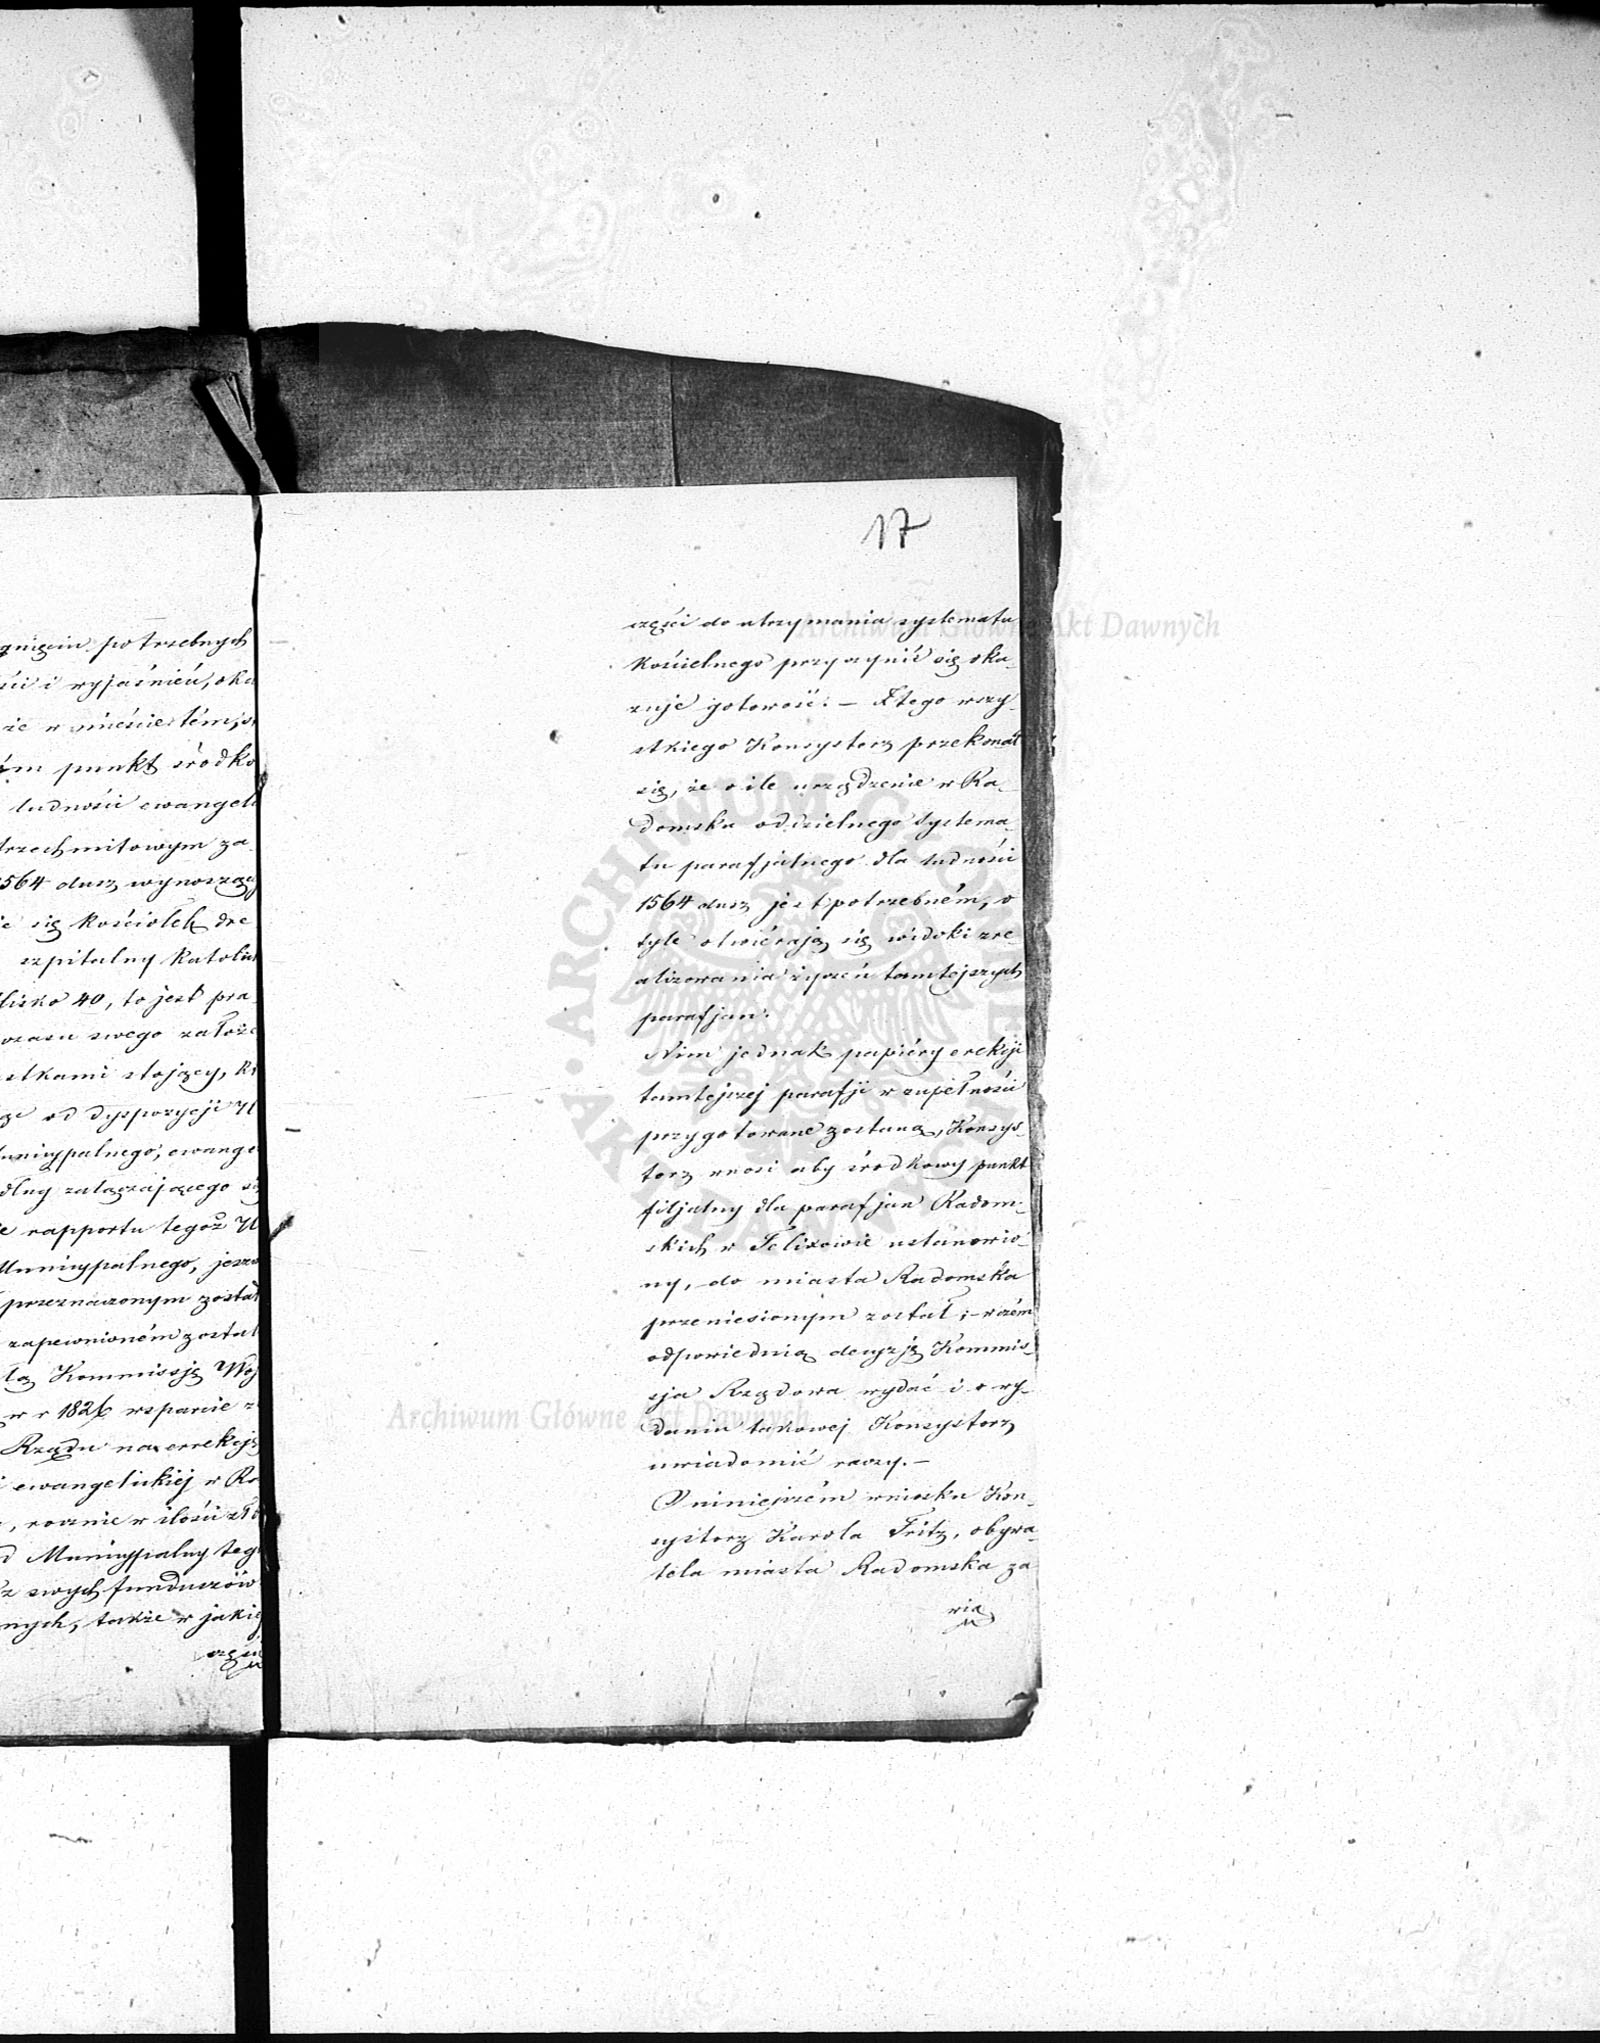 gnięciu potrzebnych
ści i wyjaśnień, oka
że w mieście tém,
ym punkt środko
ludności ewangeli
trzechmilowym za-
1564 dusz wynoszący
e się kościołek dre
szpitalny katolic
blisko 40, to jest pra-
czasu swego założe
stkami stojący,
od dyspozycji
unicypalnego, ewange
dług załączającego się
e rapportu tegoż
Municypalnego, jeszcze
przeznaczonym został
zapewnioném został
tą Kommissję Woj
w r 1826 wsparcie z
Rządu na errekcję
ewangelickiej w Ra
, rocznie w ilości zł
d Municypalny teg
z swych funduszów
nych, także w jakiej
części
17
części do utrzymania systematu
kościelnego przyczynić się oka-
zuje gotowość: – Z tego wszy-
stkiego Konsystorz przekonał
się, że o ile urządzenie w Ra-
domsku oddzielnego systema-
tu parafjalnego dla ludności
1564 dusz jest potrzebném, o
tyle otwiérają się widoki zre-
alizowania życzeń tamtejszych
parafjan.
Nim jednak papiéry erekcji
tamtejszej parafji w zupełności
przygotowane zostaną, Konsys-
torz wnosi aby środkowy punkt
filjalny dla parafjan Radom-
skich w Felixowie ustanowio-
ny, do miasta Radomska
przeniesionym został; – w czém
odpowiednią decyzję Kommis-
sja Rządowa wydać i o wy-
daniu takowej Konsystorz
uwiadomić raczy. –
O niniejszém wniosku Kon-
systorz Karola Fritz, obywa-
tela miasta Radomska za
wia
Archiwum Główne Akt Dawnych
ARCHIWUM GŁÓWNE AKT DAWNYCH
Archiwum Główne Akt Dawnych